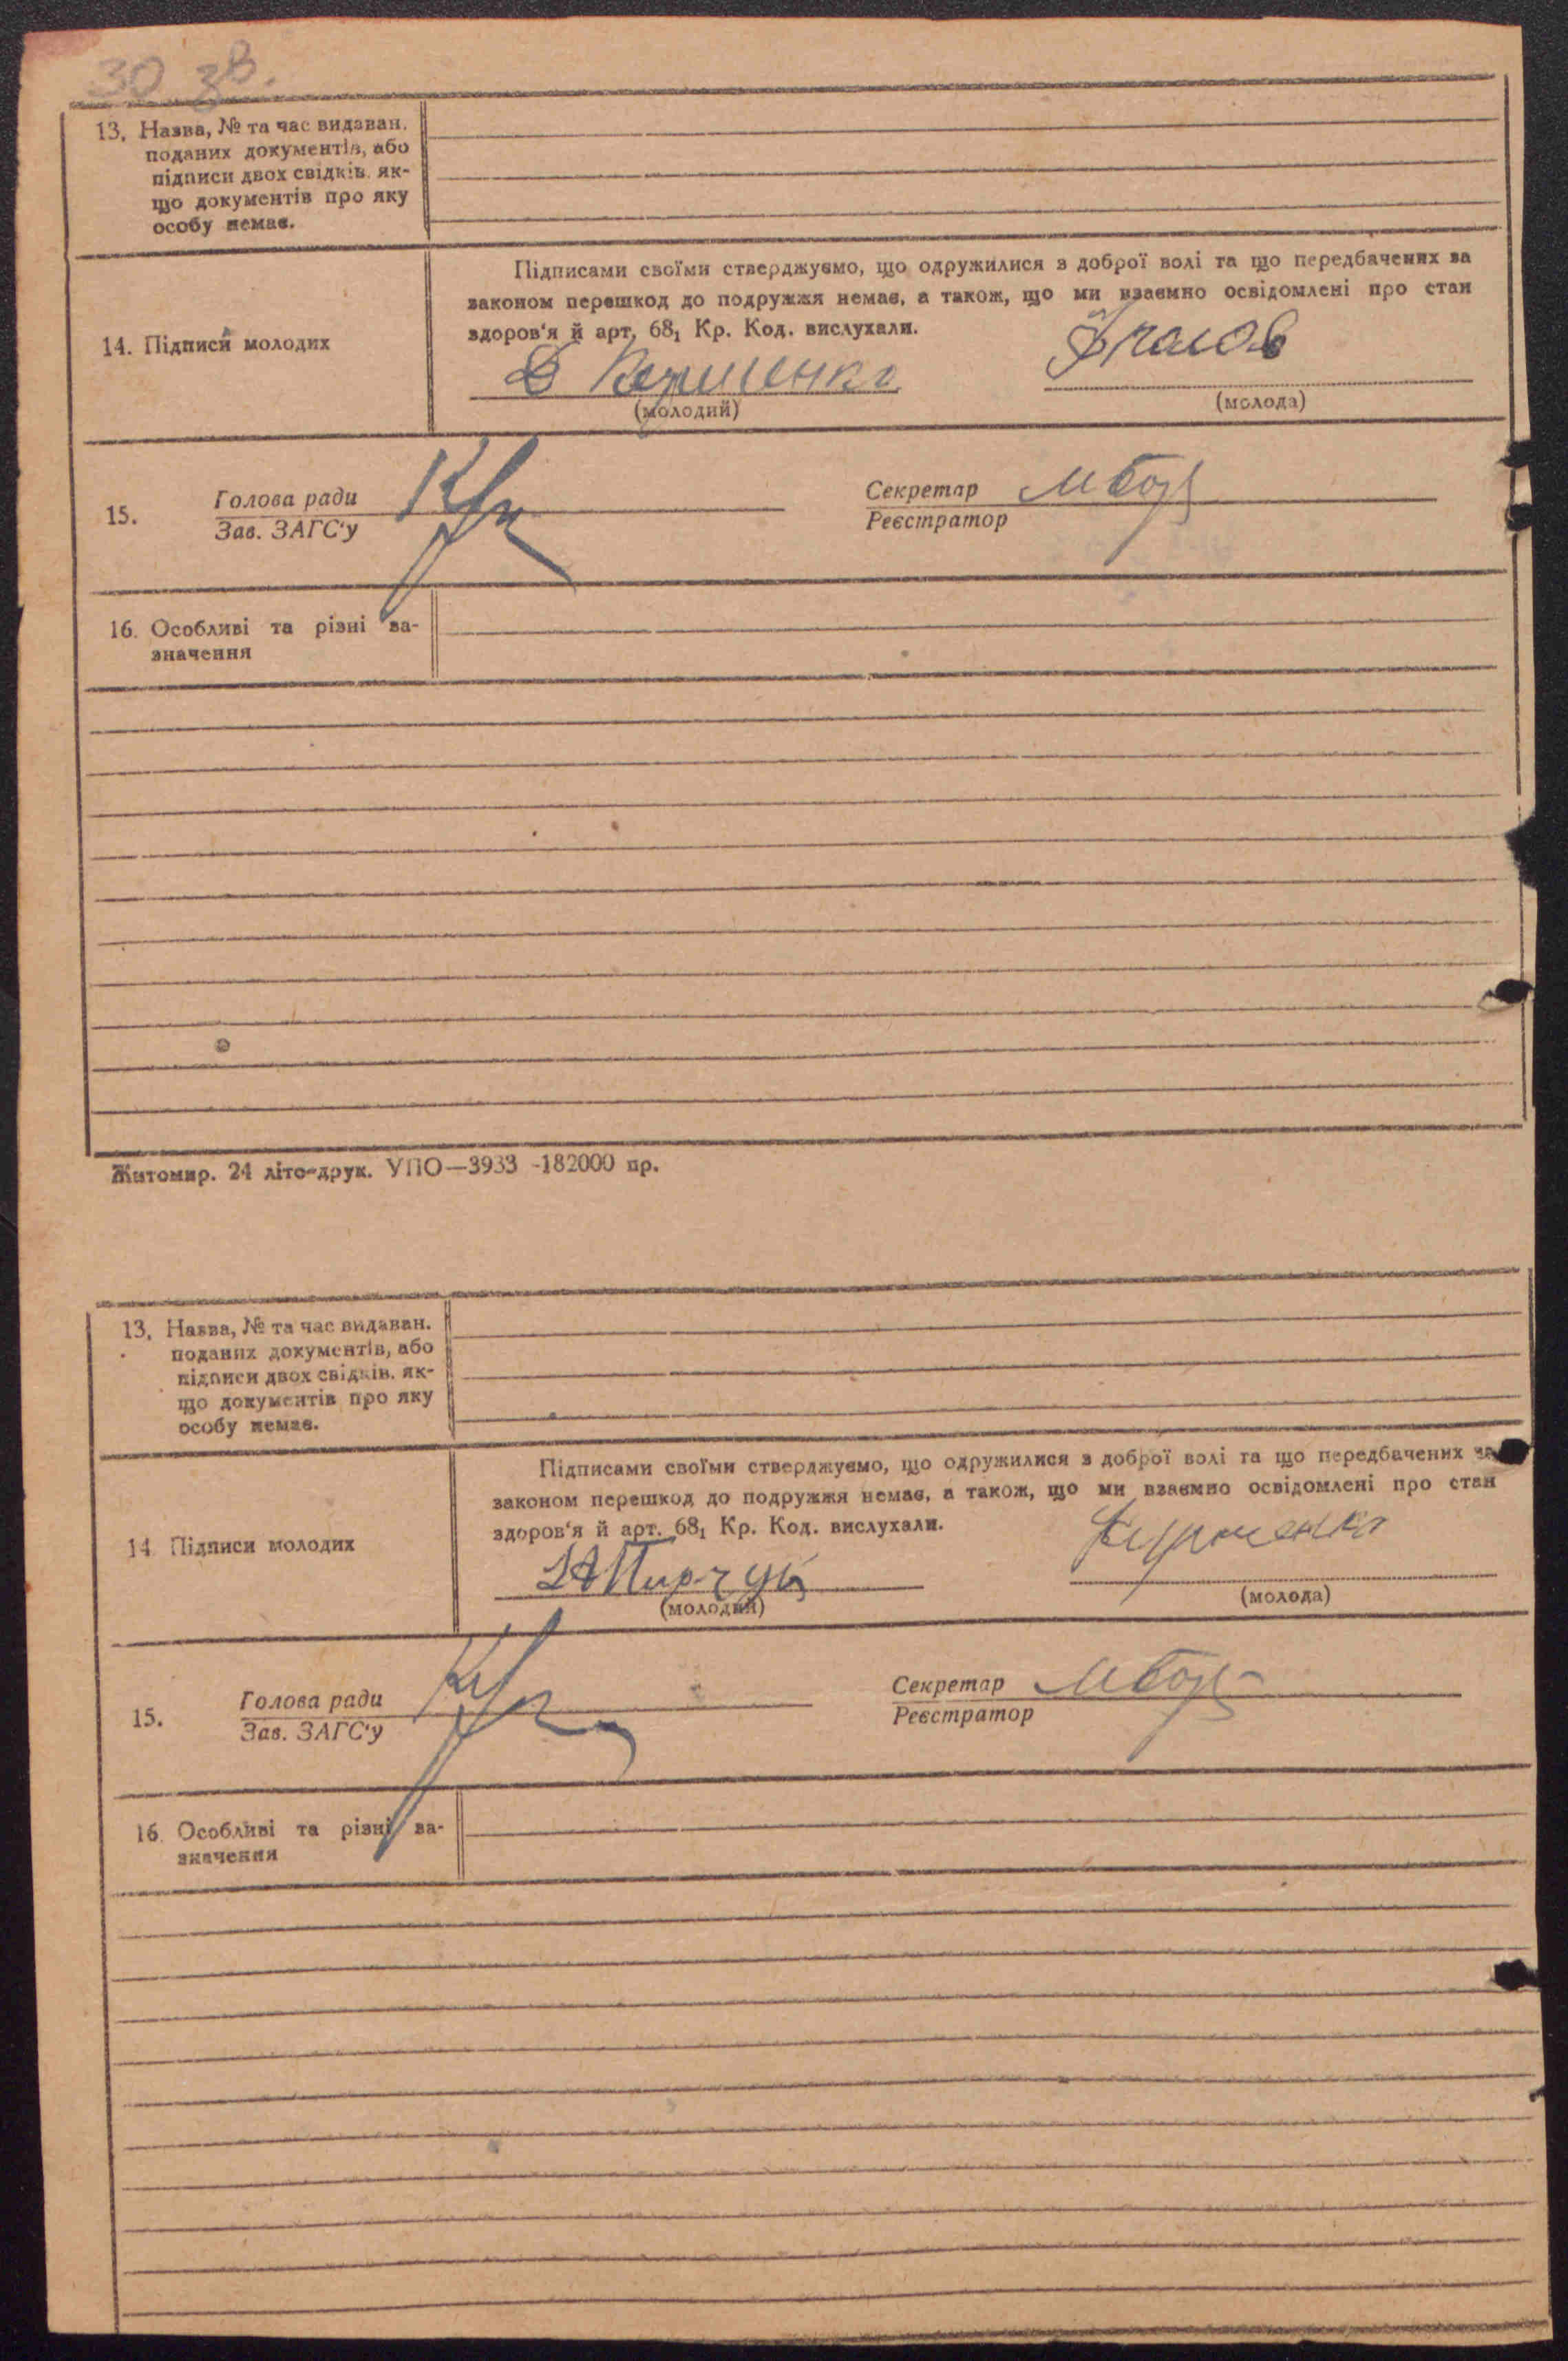 30 зв.
13. Назва, № та час видаван.
поданих документів, або
підписи двох свідків. як-
що документів про яку
особу немає.
Підписами своїми стверджуємо, що одружилися з доброї волі та що передбачених за
законом перешкод до подружжя немає, а також, що ми взаємно освідомлені про стан
здоров'я й арт. 68₁ Кр. Код. вислухали.
14. Підписи молодих
(молодий)
(молода)
15.
Голова ради
Зав. ЗАГС'у
Секретар
Реєстратор
16. Особливі та різні за-
значення
Житомир. 24 літо-друк. УПО—3933 -182000 пр.
13. Назва, № та час видаван.
поданих документів, або
підписи двох свідків. як-
що документів про яку
особу немає.
Підписами своїми стверджуємо, що одружилися з доброї волі та що передбачених за
законом перешкод до подружжя немає, а також, що ми взаємно освідомлені про стан
здоров'я й арт. 68₁ Кр. Код. вислухали.
14 Підписи молодих
(молодий)
(молода)
15.
Голова ради
Зав. ЗАГС'у
Секретар
Реєстратор
16. Особливі та різні за-
значення